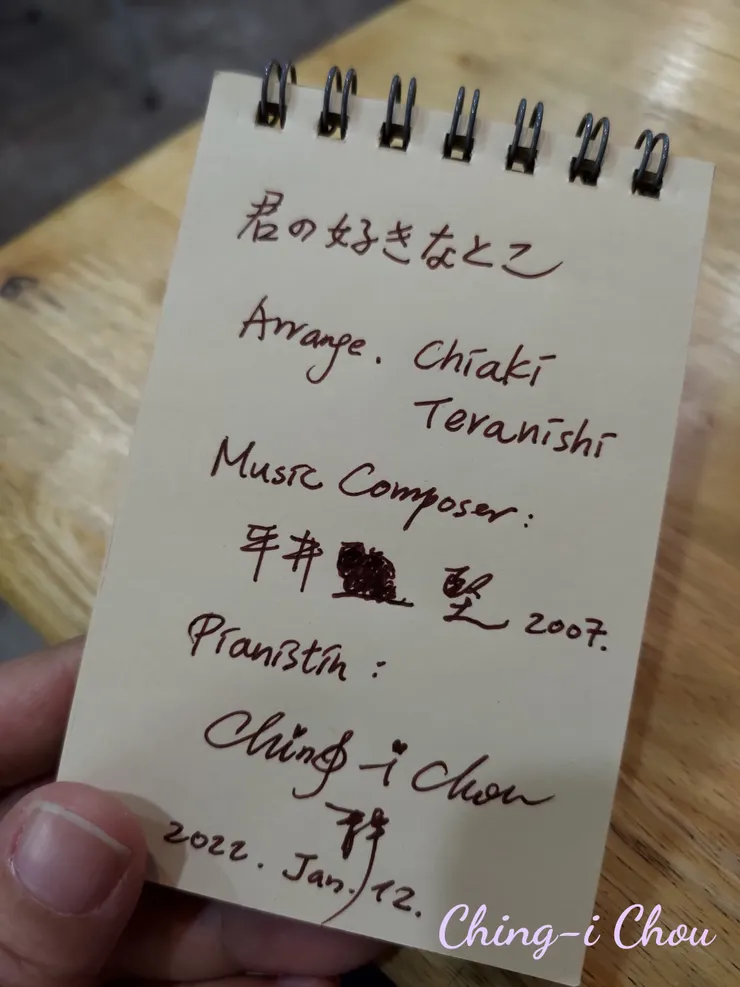 君の好きなとこ
Arrange. Chiaki
Teranishi
Music Composer:
平井 堅 2007.
Pianistin:
Ching-i Chou
2022. Jan. 12.
Ching-i Chou